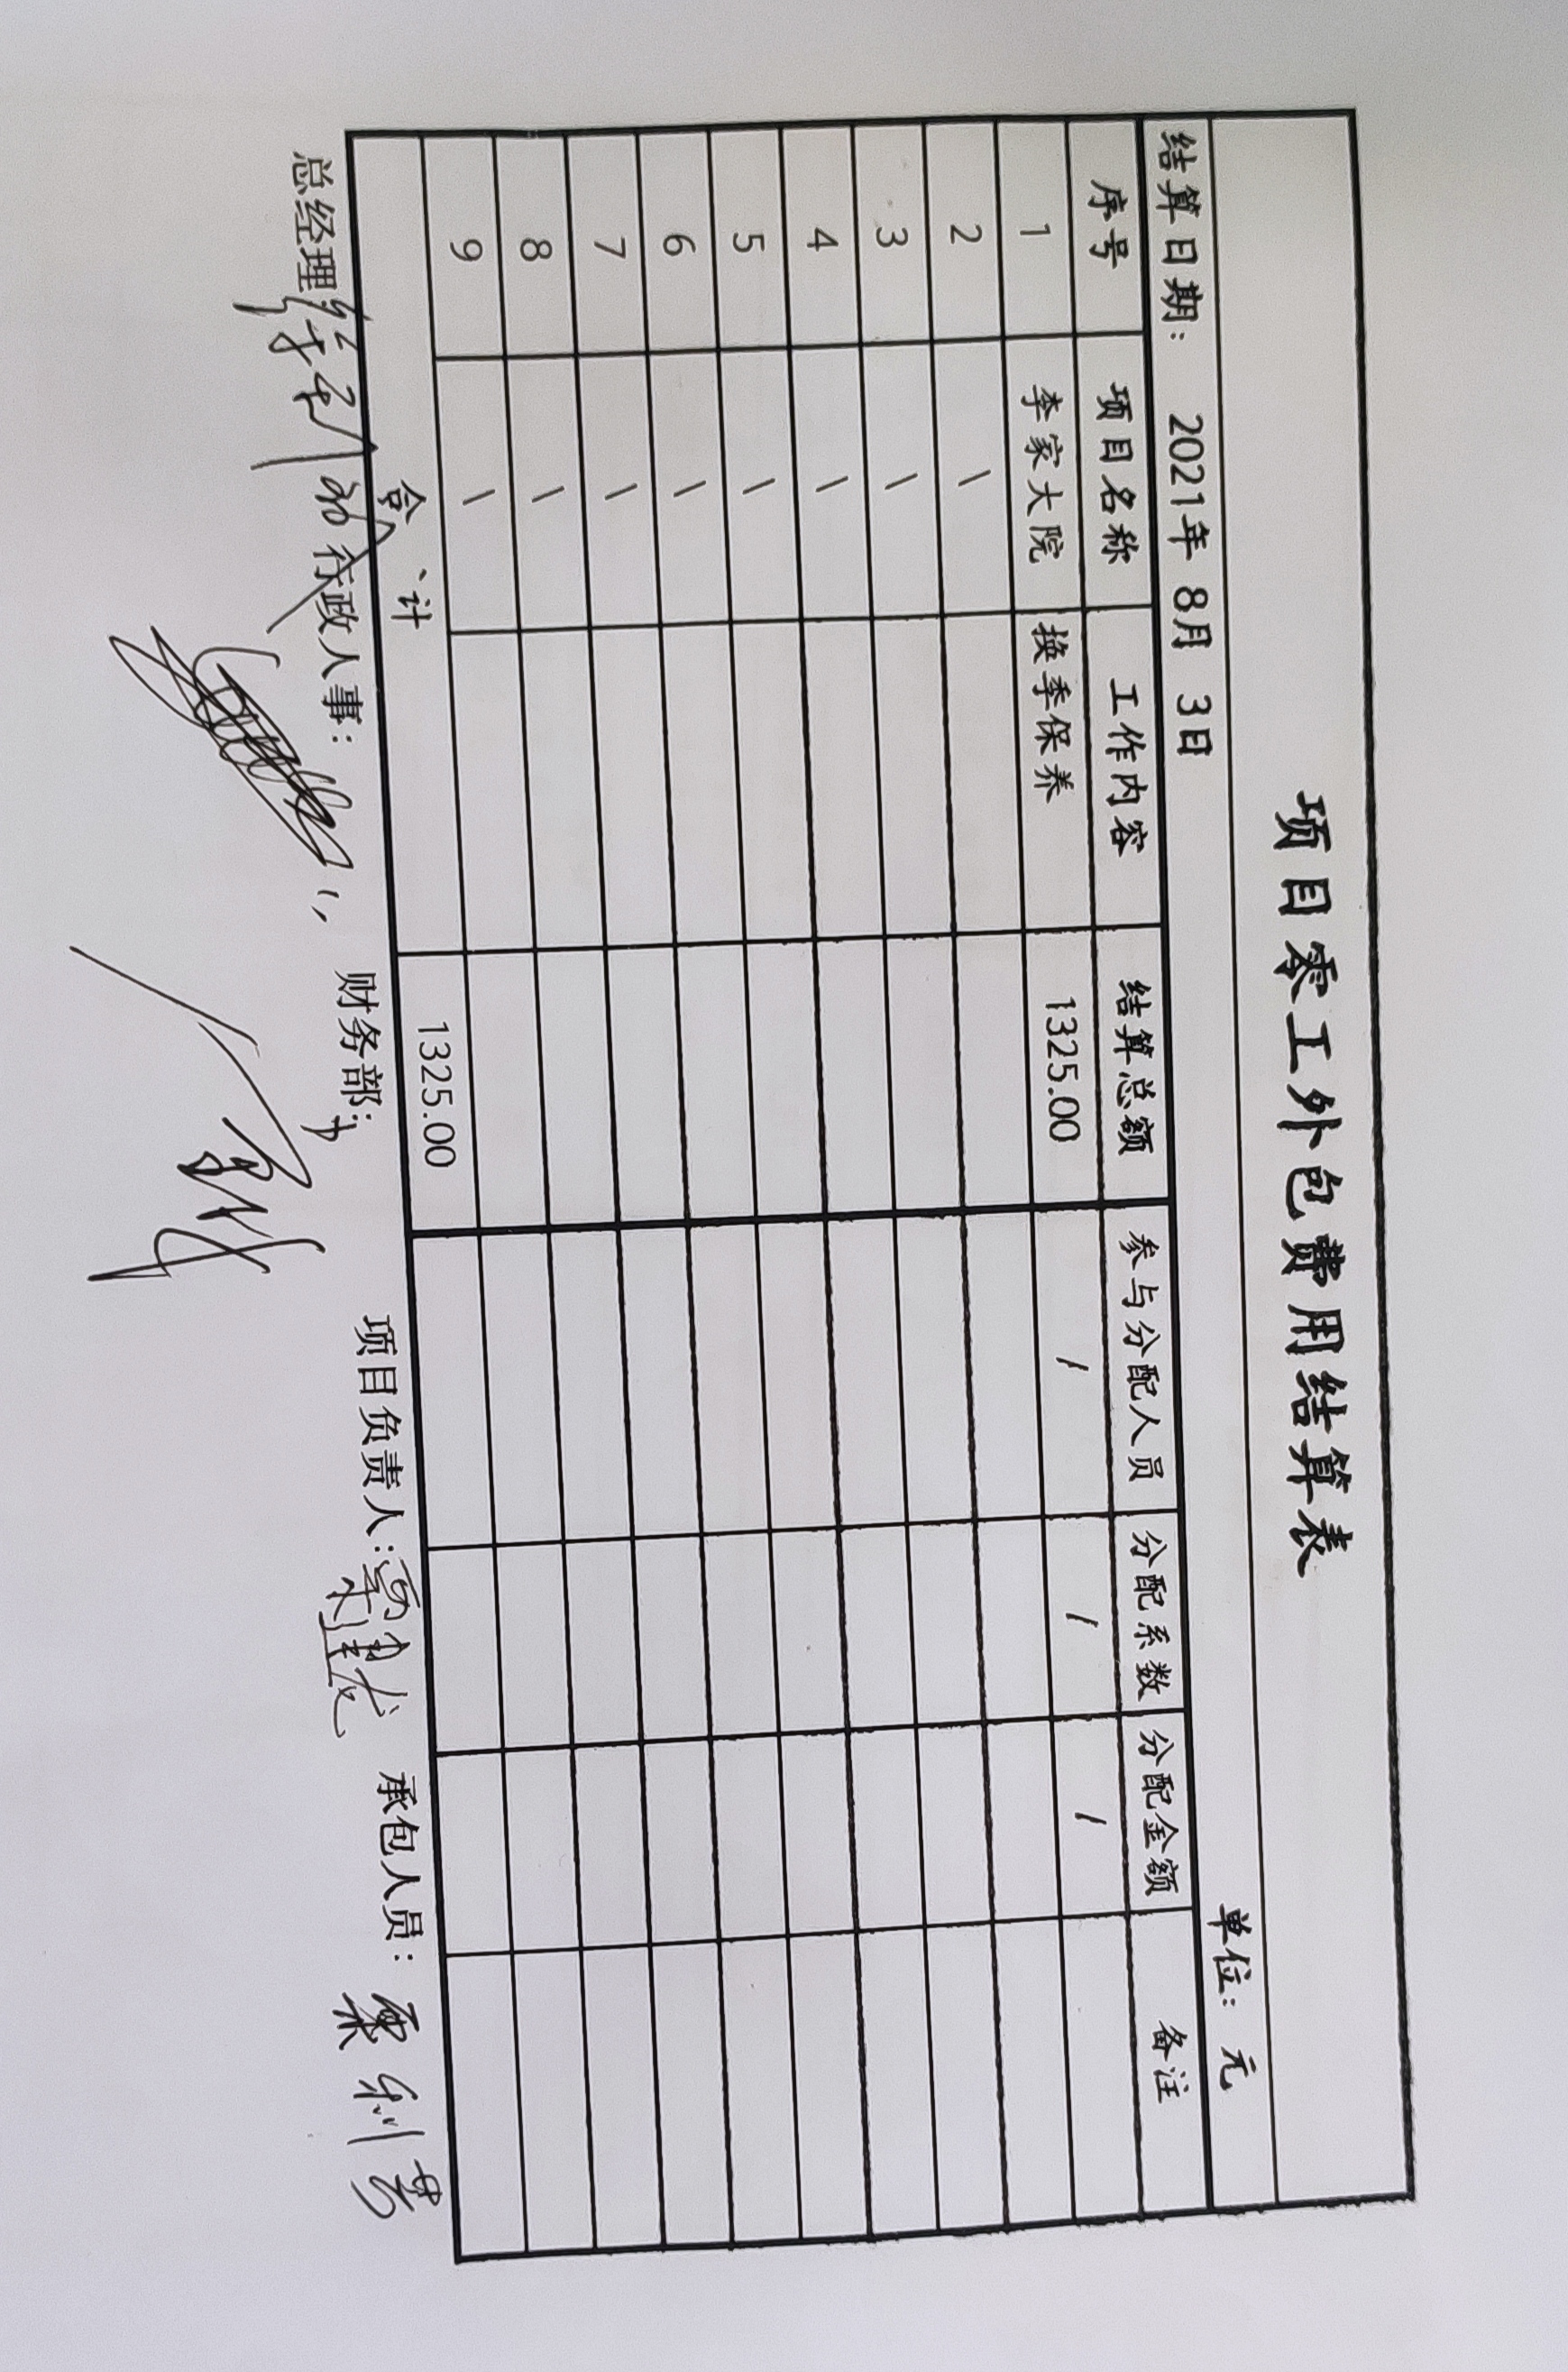 项目零工外包费用结算表
单位: 元
结算日期: 2021年 8月 3日
序号 项目名称 工作内容 结算总额 参与分配人员 分配系数 分配金额 备注
1 李家大院 换季保养 1325.00 / / /
2 \
3 \
4 \
5 \
6 \
7 \
8 \
9 \
合计 1325.00
总经理 行政人事: 财务部: 项目负责人: 承包人员: